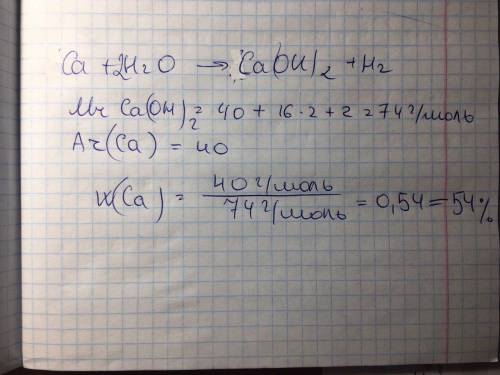 Ca + 2H₂O → Ca(OH)₂ + H₂
Mr Ca(OH)₂ = 40 + 16·2 + 2 = 74 г/моль
Ar(Ca) = 40
W(Ca) = 40 г/моль / 74 г/моль = 0,54 = 54%